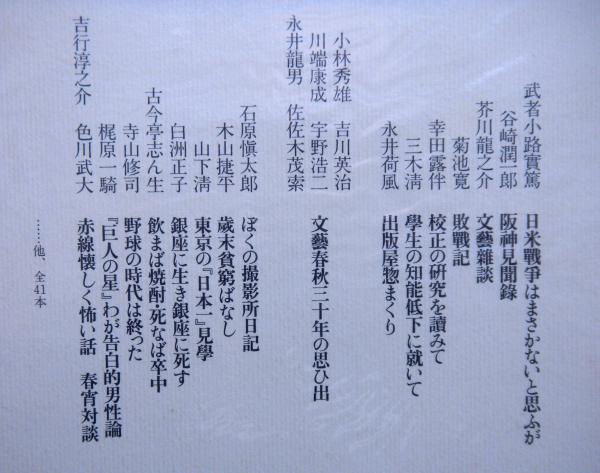 武者小路實篤 日米戰爭はまさかないと思ふが
谷崎潤一郎 阪神見聞錄
芥川龍之介 文藝雜談
菊池寛 敗戰記
幸田露伴 校正の硏究を讀みて
三木淸 學生の知能低下に就いて
永井荷風 出版屋惣まくり
小林秀雄 吉川英治
川端康成 宇野浩二 文藝春秋三十年の思ひ出
永井龍男 佐佐木茂索
石原愼太郎 ぼくの撮影所日記
木山捷平 歲末貧窮ばなし
山下淸 東京の『日本一』見學
白洲正子 銀座に生き銀座に死す
古今亭志ん生 飲まば燒酎・死なば卒中
寺山修司 野球の時代は終った
梶原一騎 『巨人の星』わが告白的男性論
吉行淳之介 色川武大 赤線懐しく怖い話 春宵対談
……他、全41本